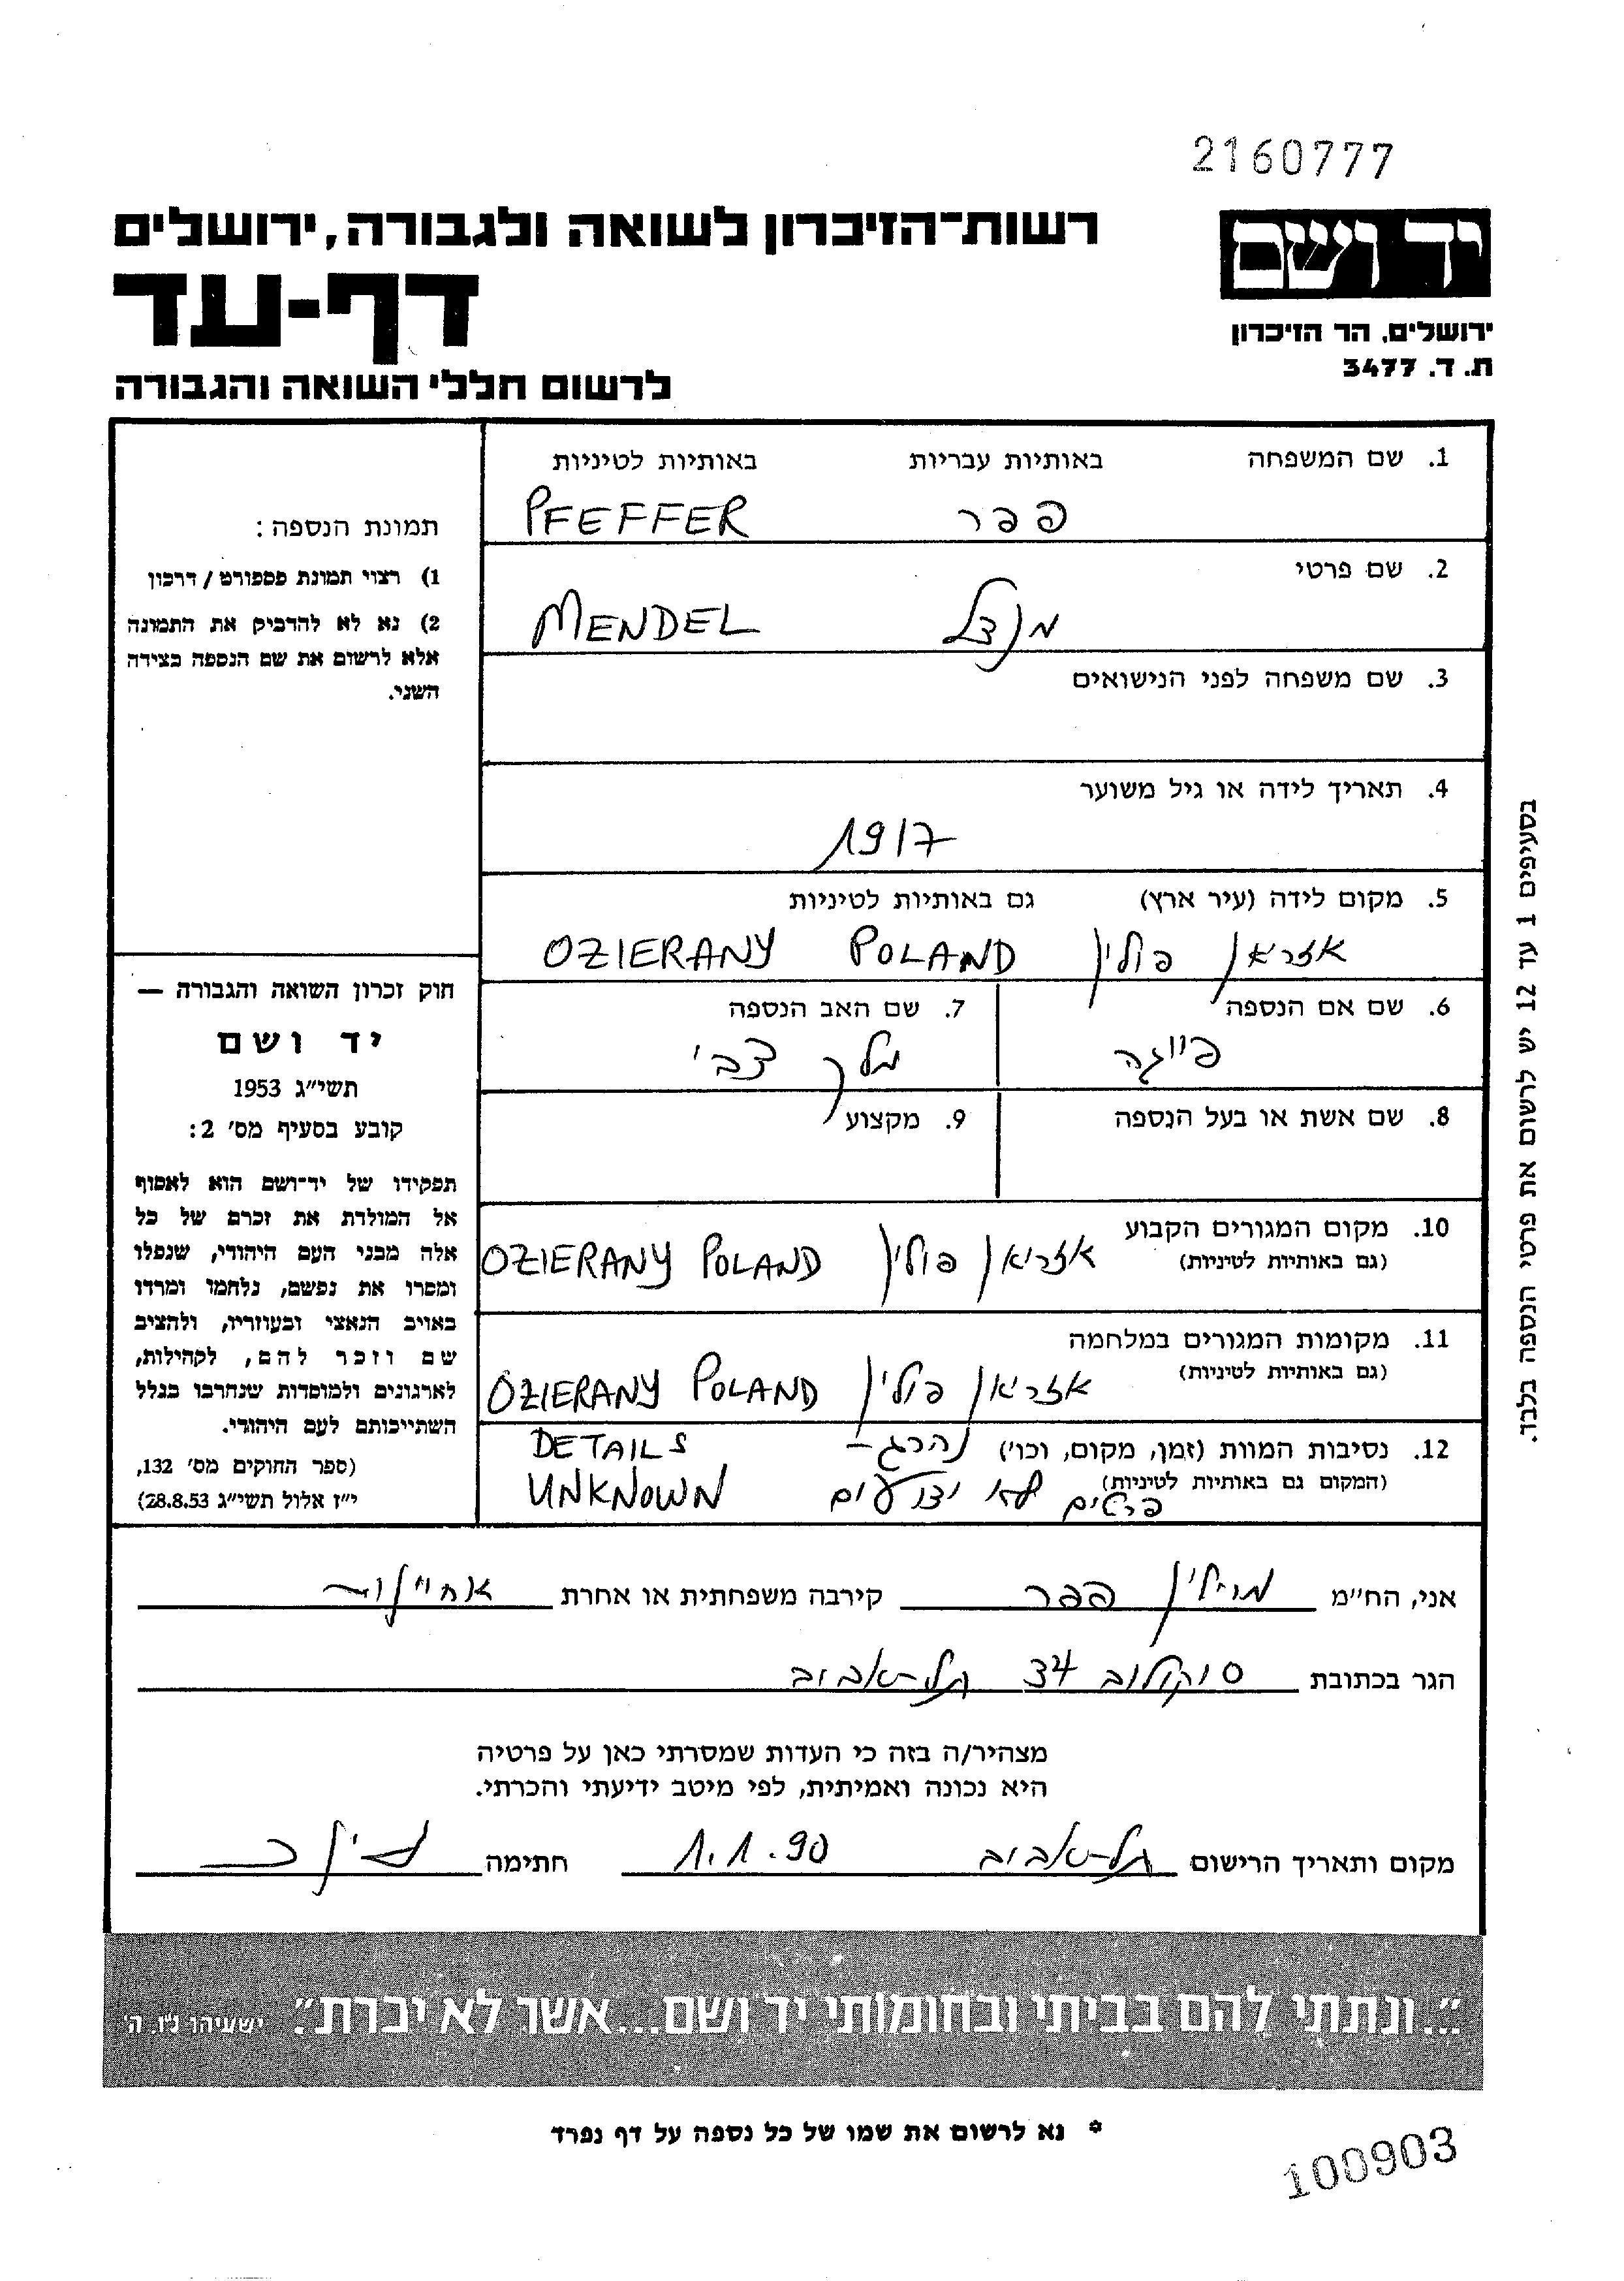 2160777
רשות־הזיכרון לשואה ולגבורה, ירושלים
יד ושם
דף-עד
ירושלים, הר הזיכרון
ת. ד. 3477
לרשום חללי השואה והגבורה
1. שם המשפחה באותיות עבריות באותיות לטיניות
פפר PFEFFER
2. שם פרטי
מנדל MENDEL
3. שם משפחה לפני הנישואים
4. תאריך לידה או גיל משוער
1917
5. מקום לידה (עיר ארץ) גם באותיות לטיניות
אזראן פולין OZIERANY POLAND
6. שם אם הנספה 7. שם האב הנספה
פייגה מלך צבי
8. שם אשת או בעל הנספה 9. מקצוע
10. מקום המגורים הקבוע
(גם באותיות לטיניות)
אזריאן פולין OZIERANY POLAND
11. מקומות המגורים במלחמה
(גם באותיות לטיניות)
אזריאן פולין OZIERANY POLAND
12. נסיבות המוות (זמן, מקום, וכו') נהרג – DETAILS
(המקום גם באותיות לטיניות)
פרטים לא ידועים UNKNOWN
תמונת הנספה:
1) רצוי תמונת פספורט / דרכון
2) נא לא להדביק את התמונה
אלא לרשום את שם הנספה בצידה
השני.
חוק זכרון השואה והגבורה —
יד ושם
תשי״ג 1953
קובע בסעיף מס' 2:
תפקידו של יד־ושם הוא לאסוף
אל המולדת את זכרם של כל
אלה מבני העם היהודי, שנפלו
ומסרו את נפשם, נלחמו ומרדו
באויב הנאצי ובעוזריו, ולהציב
שם וזכר להם, לקהילות,
לארגונים ולמוסדות שנחרבו בגלל
השתייכותם לעם היהודי.
(ספר החוקים מס' 132,
י״ז אלול תשי״ג 28.8.53)
בסעיפים 1 עד 12 יש לרשום את פרטי הנספה בלבד.
אני, הח״מ מרילין פפר קירבה משפחתית או אחרת אחיינית
הגר בכתובת סוקולוב 34 תל-אביב
מצהיר/ה בזה כי העדות שמסרתי כאן על פרטיה
היא נכונה ואמיתית, לפי מיטב ידיעתי והכרתי.
מקום ותאריך הרישום תל-אביב 1.1.90 חתימה
״...ונתתי להם בביתי ובחומותי יד ושם...אשר לא יכרת״. ישעיהו נ״ו, ה'
* נא לרשום את שמו של כל נספה על דף נפרד
100903